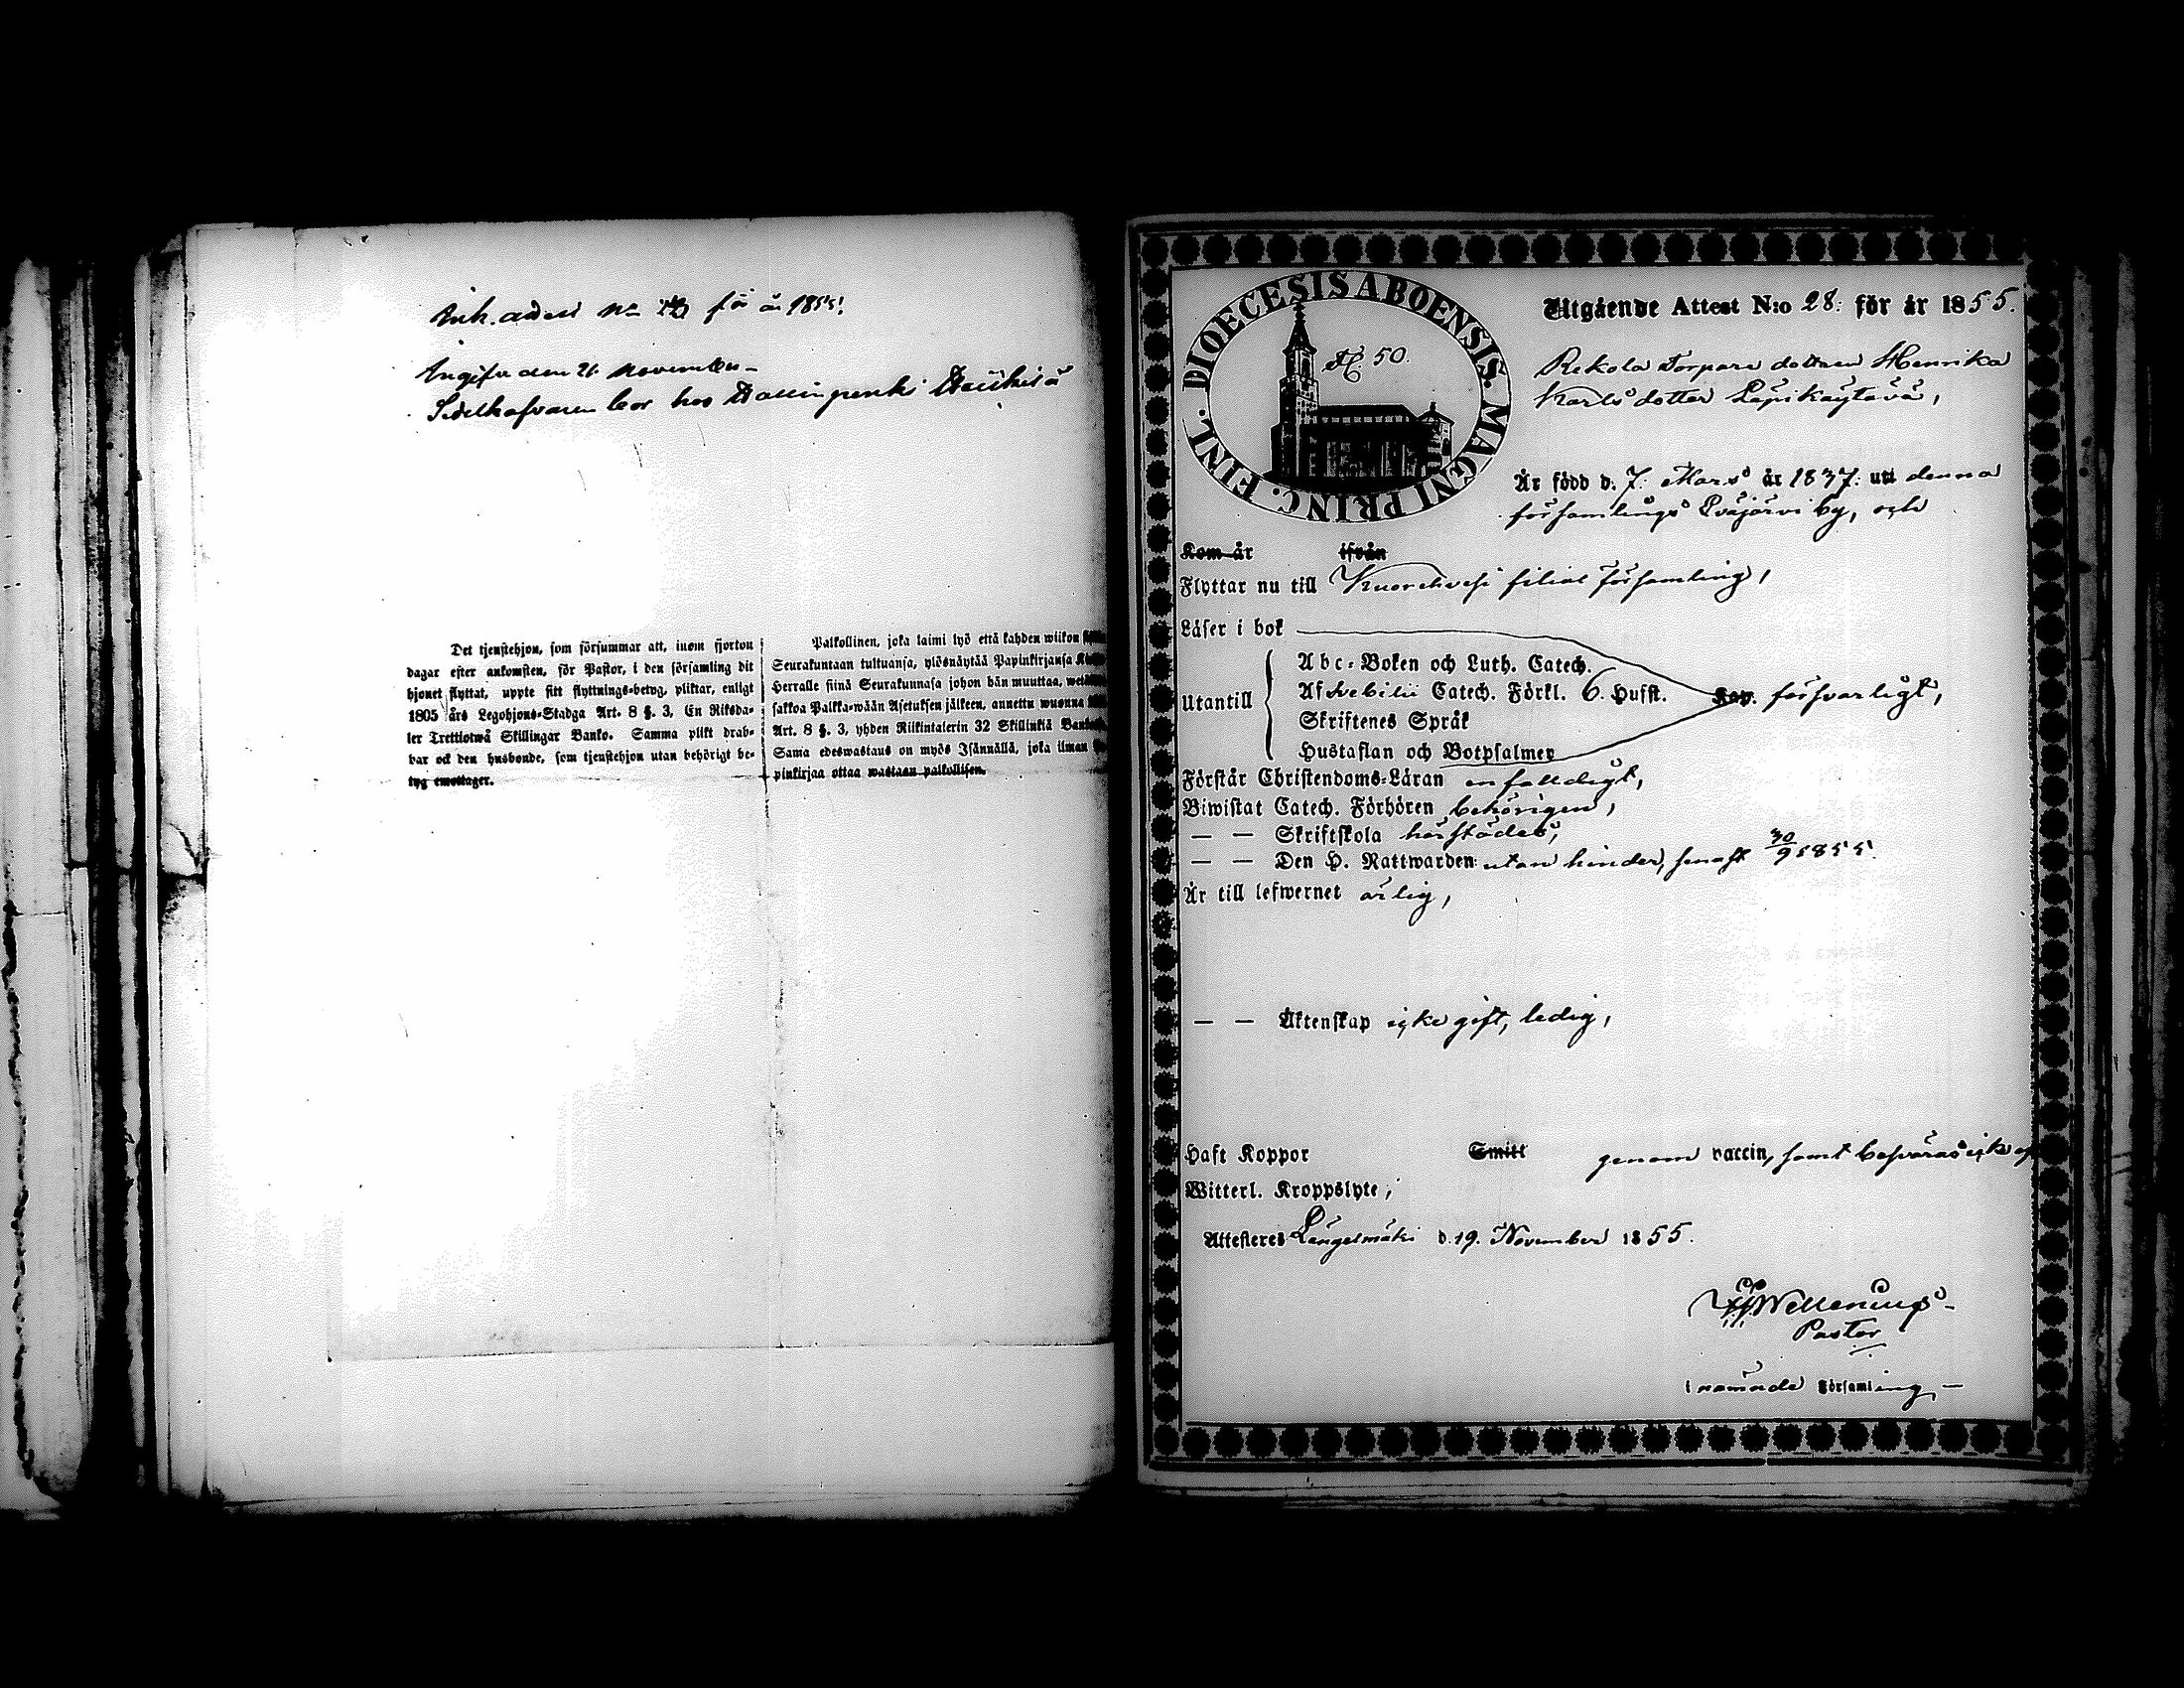 Ink. attest No för år 1855.
Ingifv. den 21 November
Sedelhafvaren bor hos
Det tjenstehjon, som försummar att, inom fjorton
dagar efter ankomsten, för Pastor, i den församling dit
hjonet flyttat, uppte sitt flyttnings-betyg, pliktar, enligt
1805 års Legohjons-Stadga Art. 8 §. 3, En Riksda-
ler Trettiotwå Skillingar Banko. Samma plikt drab-
bar ock den husbonde, som tjenstehjon utan behörigt be-
tyg emottager.
Palkollinen, joka laimi lyö että kahden wiikon
Seurakuntaan tultuansa, ylösnäytää Papinkirjansa
Herralle siinä Seurakunnasa johon hän muuttaa,
sakkoa Palkka-wään Asetuksen jälkeen, annettu wuonna
Art. 8 §. 3, yhden Riikintalerin 32 Skillinkiä
Sama edeswastaus on myös Isännällä, joka ilman
pinkirjaa ottaa wastaan palkollisen.
DIOECESIS ABOENSIS. MAGNI PRINC. FINL.
50.
Utgående Attest N:o 28: för år 1855.
Rekola Torpare dottern Henrika
Karlsdotter Läpikäytävä,
Är född d. 7: Mars år 1837: uti denna
församlings Löäjärvi by, och
Kom år ifrån
Flyttar nu till Kuorehvesi filial församling,
Läser i bok
Utantill
Abc-Boken och Luth. Catech.
Af Svebilii Catech. Förkl. 6. Hufst. Kap. försvarligt,
Skriftenes Språk
Hustaflan och Botpsalmer
Förstår Christendoms-Läran enfaldigt,
Biwistat Catech. Förhören behörigen,
— — Skriftskola härstädes,
— — Den H. Nattwarden utan hinder, senast 30/9 1855.
Är till lefwernet ärlig,
— — Äktenskap icke gift, ledig,
Haft Koppor Smitt genom vaccin, samt besväras icke af
Witterl. Kroppslyte,
Attesteres Längelmäki d. 19. November 1855.
Pastor
i nämnde Församling,